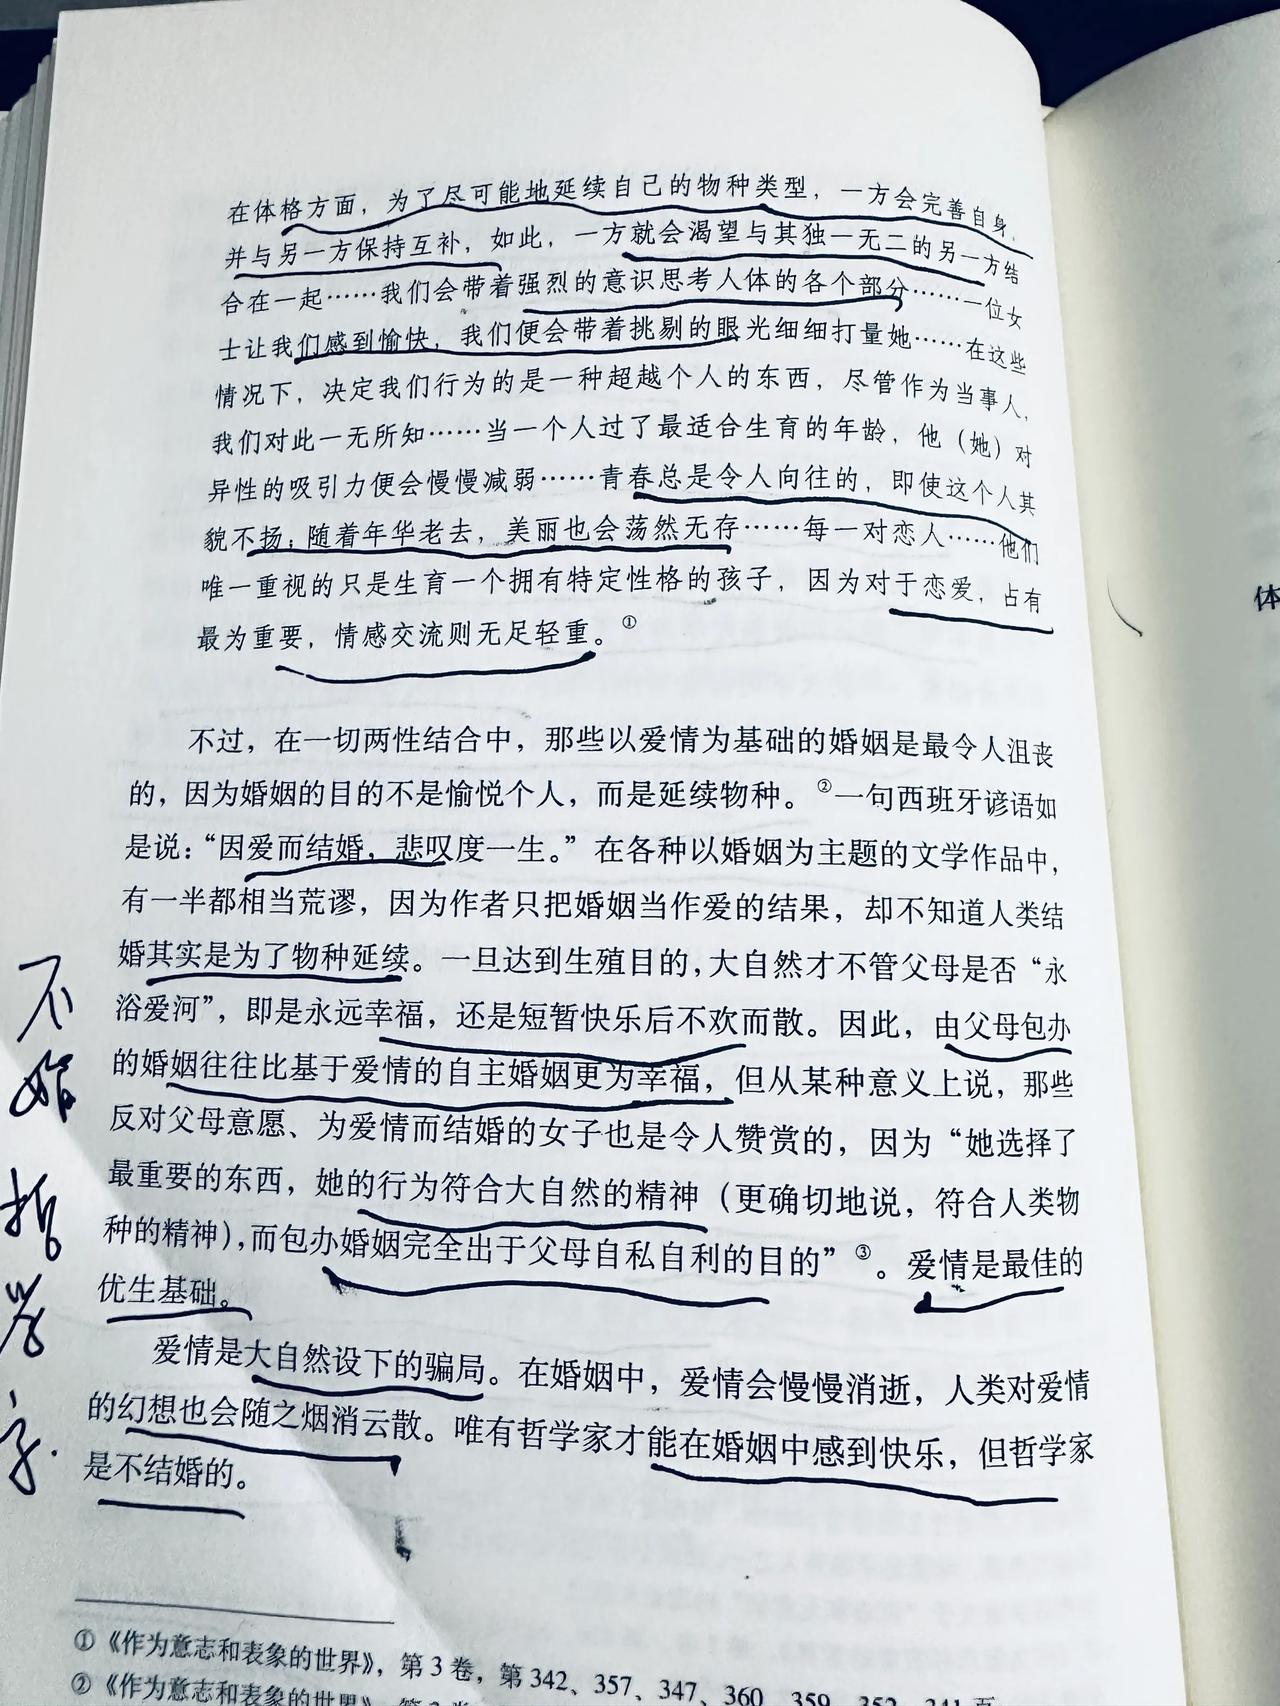 在体格方面，为了尽可能地延续自己的物种类型，一方会完善自身，
并与另一方保持互补，如此，一方就会渴望与其独一无二的另一方结
合在一起……我们会带着强烈的意识思考人体的各个部分……一位女
士让我们感到愉快，我们便会带着挑剔的眼光细细打量她……在这些
情况下，决定我们行为的是一种超越个人的东西，尽管作为当事人，
我们对此一无所知……当一个人过了最适合生育的年龄，他（她）对
异性的吸引力便会慢慢减弱……青春总是令人向往的，即使这个人其
貌不扬；随着年华老去，美丽也会荡然无存……每一对恋人……他们
唯一重视的只是生育一个拥有特定性格的孩子，因为对于恋爱，占有
最为重要，情感交流则无足轻重。①
不过，在一切两性结合中，那些以爱情为基础的婚姻是最令人沮丧
的，因为婚姻的目的不是愉悦个人，而是延续物种。②一句西班牙谚语如
是说：“因爱而结婚，悲叹度一生。”在各种以婚姻为主题的文学作品中，
有一半都相当荒谬，因为作者只把婚姻当作爱的结果，却不知道人类结
婚其实是为了物种延续。一旦达到生殖目的，大自然才不管父母是否“永
浴爱河”，即是永远幸福，还是短暂快乐后不欢而散。因此，由父母包办
的婚姻往往比基于爱情的自主婚姻更为幸福，但从某种意义上说，那些
反对父母意愿、为爱情而结婚的女子也是令人赞赏的，因为“她选择了
最重要的东西，她的行为符合大自然的精神（更确切地说，符合人类物
种的精神），而包办婚姻完全出于父母自私自利的目的”③。爱情是最佳的
优生基础。
爱情是大自然设下的骗局。在婚姻中，爱情会慢慢消逝，人类对爱情
的幻想也会随之烟消云散。唯有哲学家才能在婚姻中感到快乐，但哲学家
是不结婚的。
①《作为意志和表象的世界》，第3卷，第342、357、347、360、359、352、341页
②《作为意志和表象的世界》，第3卷
不
婚
哲
学
家
体